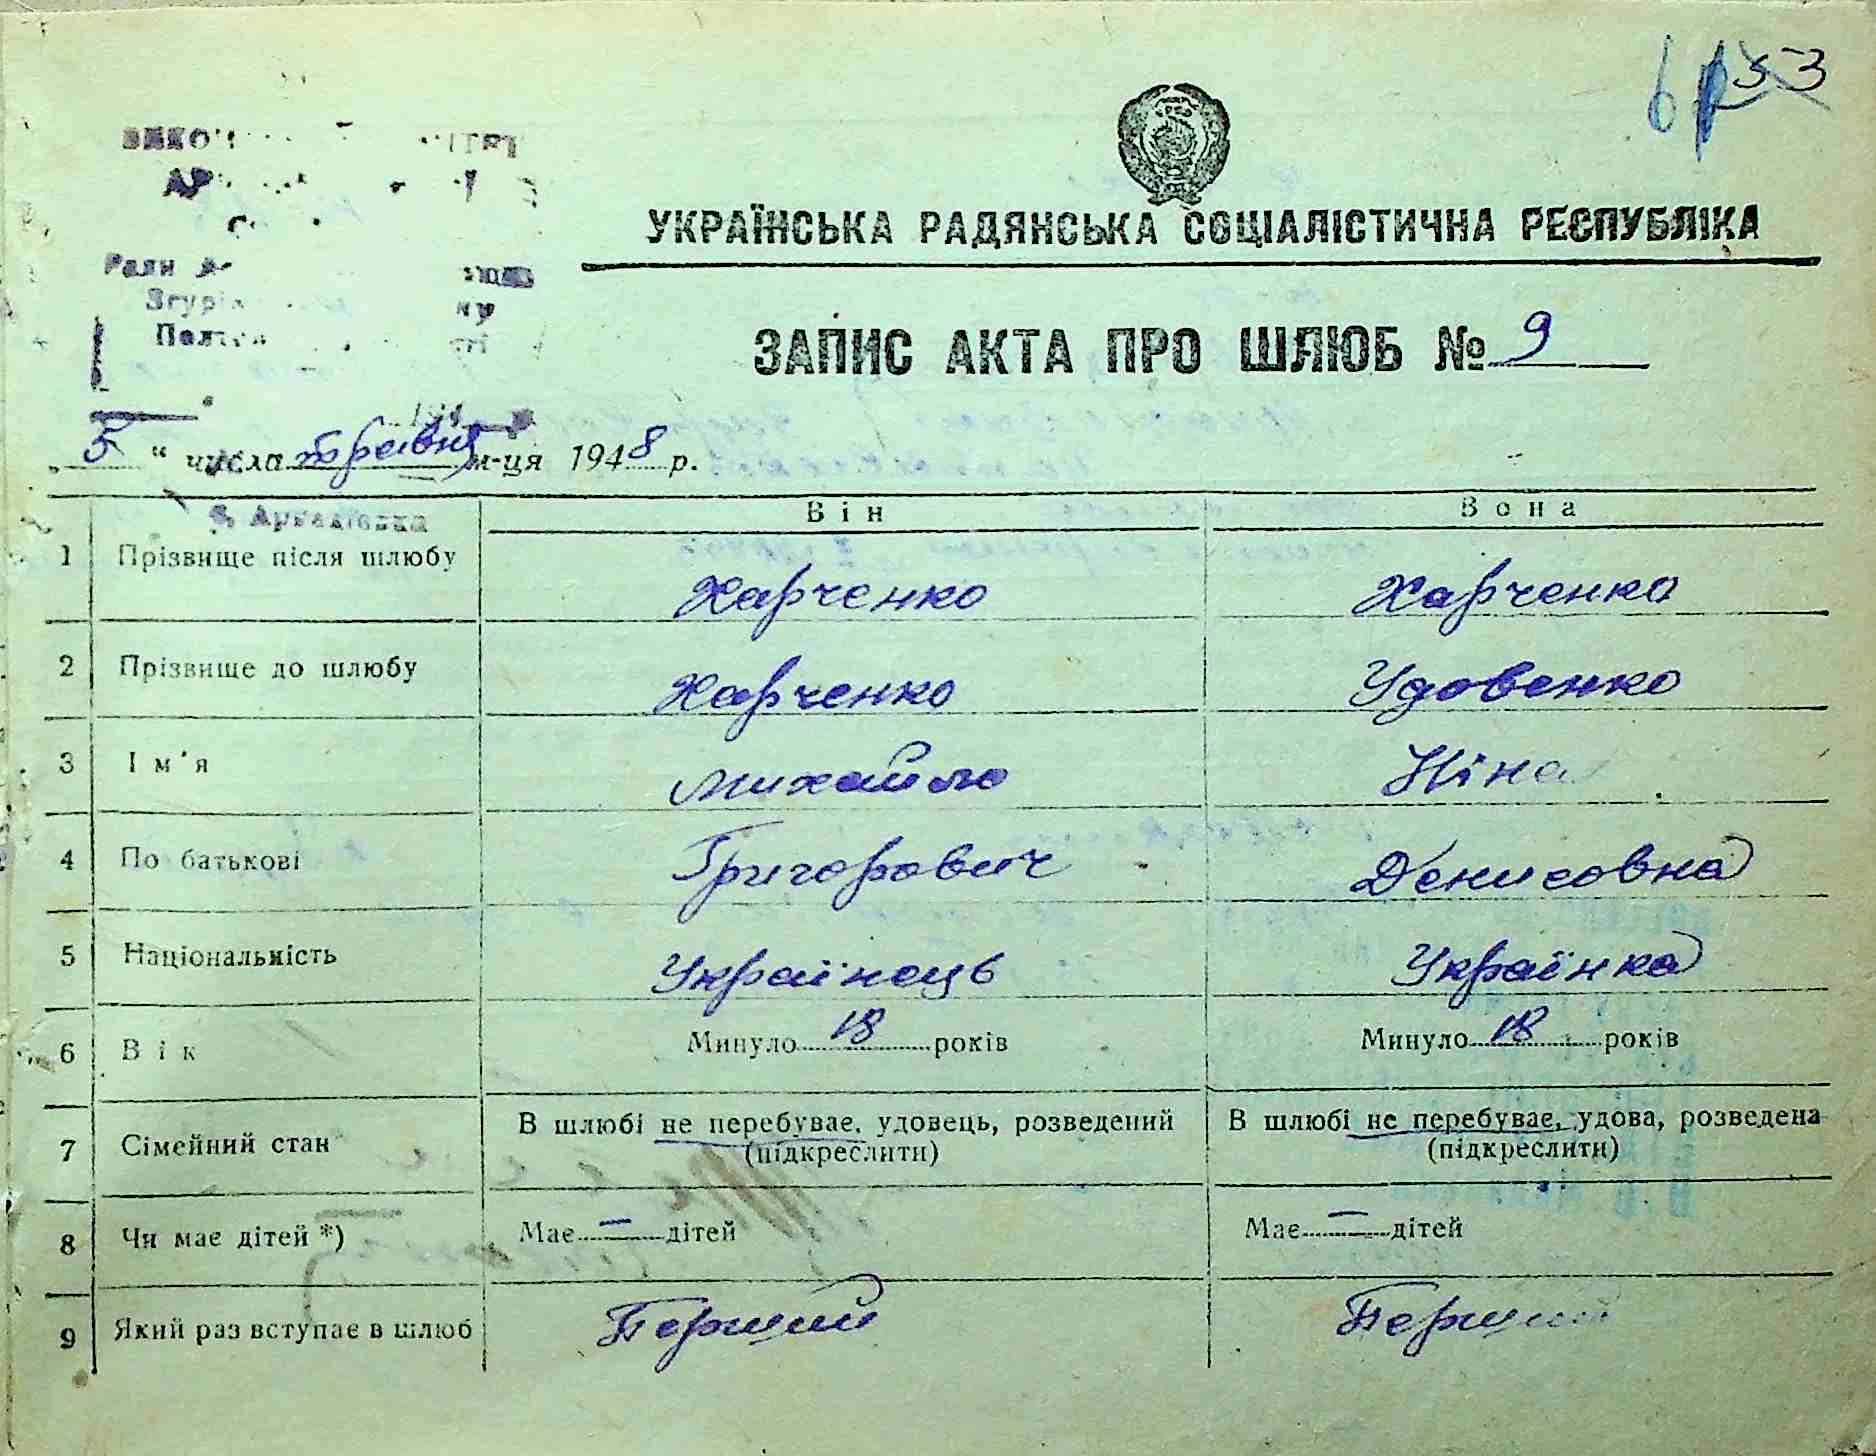 53
УКРАЇНСЬКА РАДЯНСЬКА СОЦІАЛІСТИЧНА РЕСПУБЛІКА
ЗАПИС АКТА ПРО ШЛЮБ № 9
„ 5 “ числа травня м-ця 1948 р.
с. Аркадіївка
Він Вона
1 Прізвище після шлюбу Харченко Харченко
2 Прізвище до шлюбу Харченко Удовенко
3 Ім'я Михайло Ніна
4 По батькові Григорович Денисовна
5 Національність Українець Українка
6 Вік Минуло 18 років Минуло 18 років
7 Сімейний стан В шлюбі не перебуває, удовець, розведений (підкреслити) В шлюбі не перебуває, удова, розведена (підкреслити)
8 Чи має дітей *) Має — дітей Має — дітей
9 Який раз вступає в шлюб Перший Перший